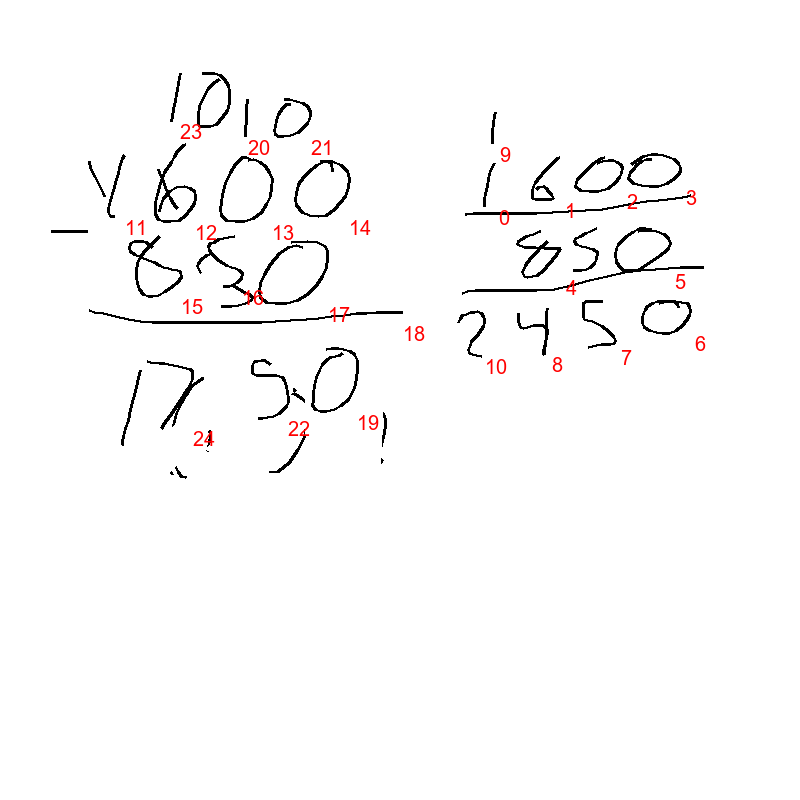 10 10
23 20 21
1600
11 12 13 14
- 850
15 16 17 18
17 50
24 22 19
1
9
1600
0 1 2 3
850
4 5
2450
10 8 7 6